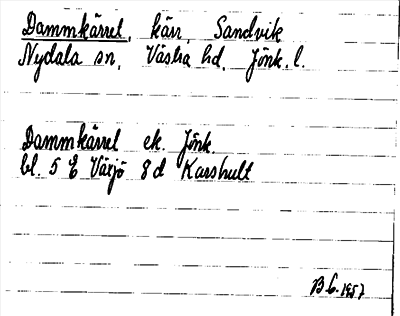 Dammkärret, kärr, Sandvik
Nydala sn, Västra hd. Jönk. l.
Dammkärret ek. Jönk.
bl. 5 E Växjö 8 d Karshult
B G. 1957